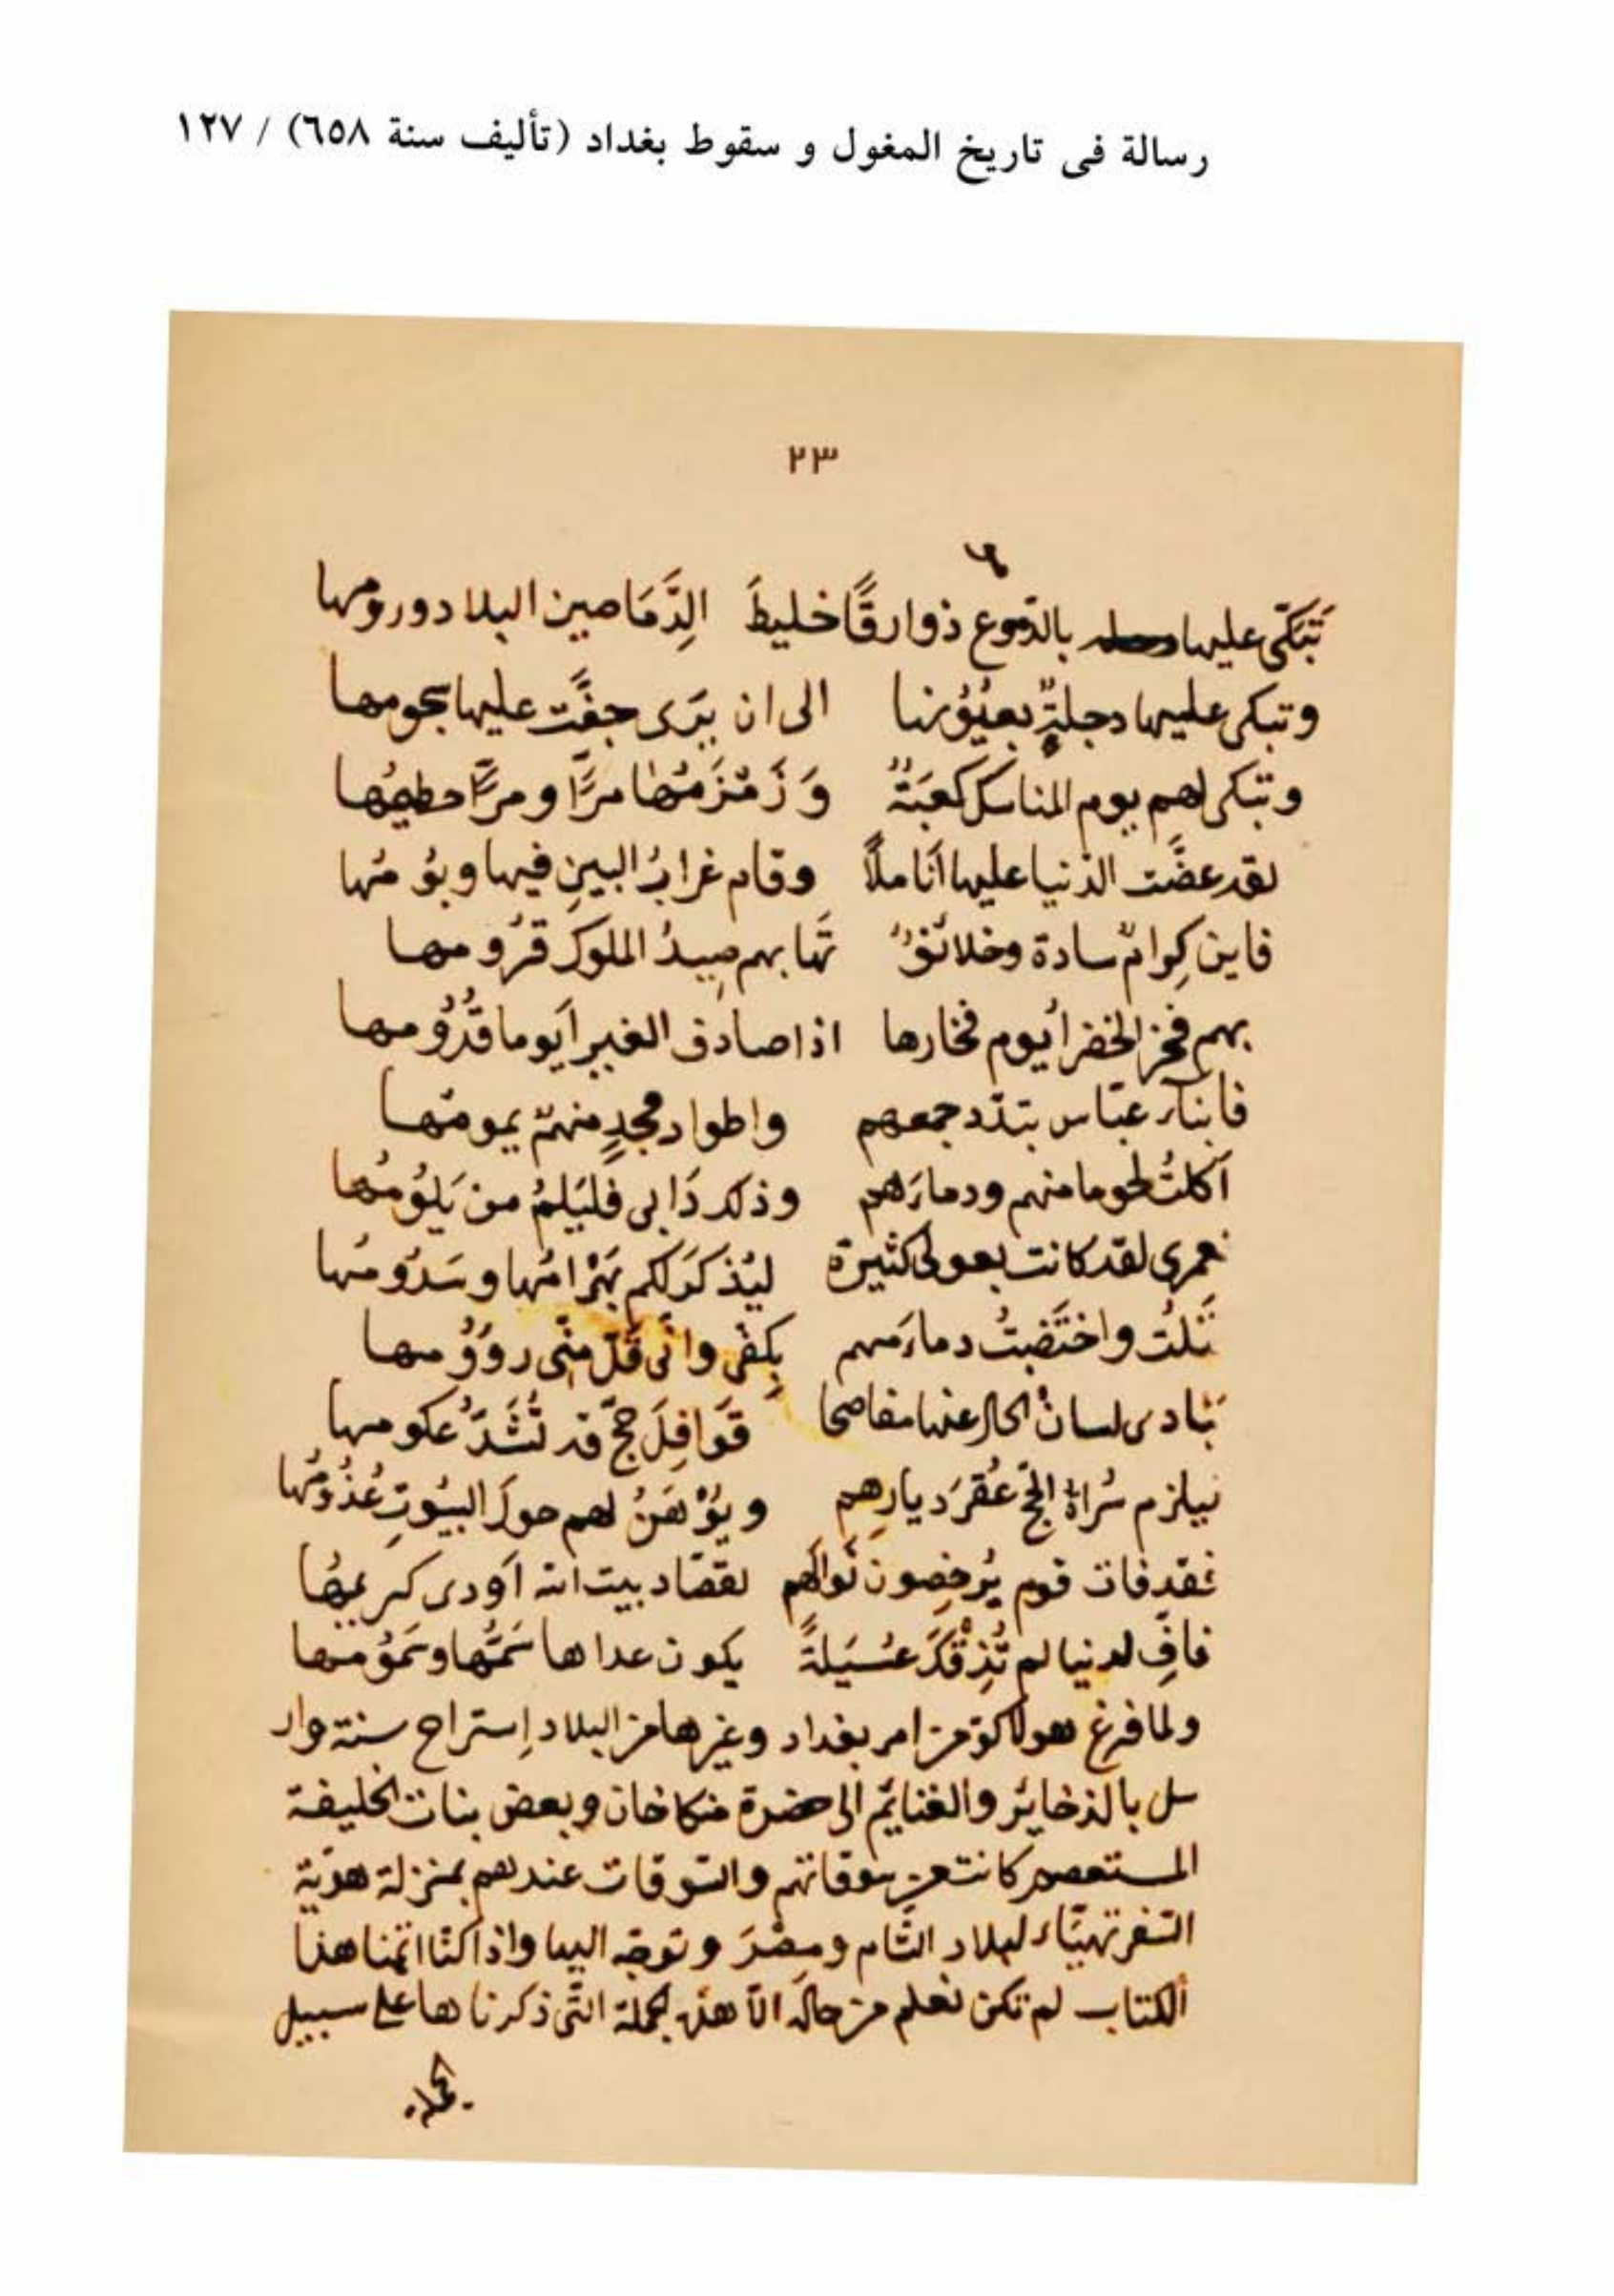 رسالة فى تاريخ المغول و سقوط بغداد (تأليف سنة ٦٥٨) / ١٢٧
٢٣
تَبَكّى عليها بالدّموع ذوارقًا خليطَ الدِّمَا صين البلاد ورومها
وتبكى عليها دجلةٌ بعيُوُنها الى ان يرَى جفَّت عليها سجومها
وتبكى لهم يوم المناسك كعبَتٌه وَزَمْزَمُها مرًّا ومرًّا حطيمُها
لقد عضَّت الدنيا عليها اَناملاً وقام غرابُ البينِ فيها وبُومُها
فاين كِرامٌ سادة وخلائفٌ تهَابهم صِيدُ الملوك قرُومها
بهم فخر الخضرا يوم فخارها اذا صادف الغبرا يوما قدُّومها
فابناء عبّاس تبدّد جمعهم واطواد مجدٍ منهم
اَكلتُ لحوما منهم ودماءَهم وذلك دَابى فليَلمُ من يَلوُمُها
لعمرى لقد كانت بعولى كثيرة ليُذكَرَ لكم بَهْرامُها وسَدُومُها
واختَضبتُ دماءَهم بِكفّى وانّى قلّ منّى روؤُمها
ينادى لسانُ الحال عنها مفاصحا قوَافِلَ حجّ قد تُشَدُّ عكومها
سُراة الحجّ عُقرَ ديارِهم لهم حولَ البيُوتِ
فقد فات قوم يُرخِصون نَوالَهم لقصّاد بيت الله اَودى كريمُها
فافِّ لدنيا لم تُذِقْكَ عسَيلةً يكون عداها سَمُّها وسَمُومها
ولما فرغ هولاكو من امر بغداد وغيرها من البلاد اِستراح سنة وار
سل بالذخائر والغنايم الى حضرة منكاخان وبعض بنات الخليفة
المستعصم كانت من سوقاتهم والسّوقات عندهم بمنزلة هدّية
السّفر تهيّاء لبلاد الشام ومِصْرَ وتوجّه اليها واذا كنّا اتممنا هذا
الكتاب لم نكن نعلم من حاله الّا هذه الجملة التّى ذكرناها على سبيل